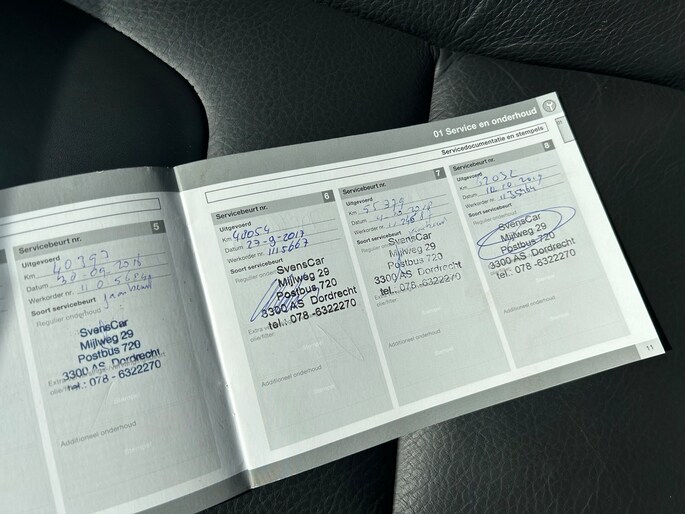 Servicebeurt nr. 5
Uitgevoerd
Km 40393
Datum
Werkorder nr.
Soort servicebeurt
Regulier onderhoud
SvensCar
Mijlweg 29
Postbus 720
3300 AS Dordrecht
tel.: 078 - 6322270
Additioneel onderhoud
01 Service en onderhoud
Servicedocumentatie en stempels
Servicebeurt nr. 6
Uitgevoerd
Km 48054
Datum 27-9-2017
Werkorder nr. 1115667
Soort servicebeurt
Regulier onderhoud
SvensCar
Mijlweg 29
Postbus 720
3300 AS Dordrecht
tel.: 078 -6322270
Additioneel onderhoud
Servicebeurt nr. 7
Uitgevoerd
Km 55379
Datum
Werkorder nr.
Soort servicebeurt
Regulier onderhoud
SvensCar
Mijlweg 29
Postbus 720
3300 AS Dordrecht
tel.: 078 -6322270
Additioneel onderhoud
Servicebeurt nr. 8
Uitgevoerd
Km
Datum
Werkorder nr.
Soort servicebeurt
Regulier onderhoud
SvensCar
Mijlweg 29
Postbus 720
3300 AS Dordrecht
tel.: 078 -6322270
Additioneel onderhoud
11